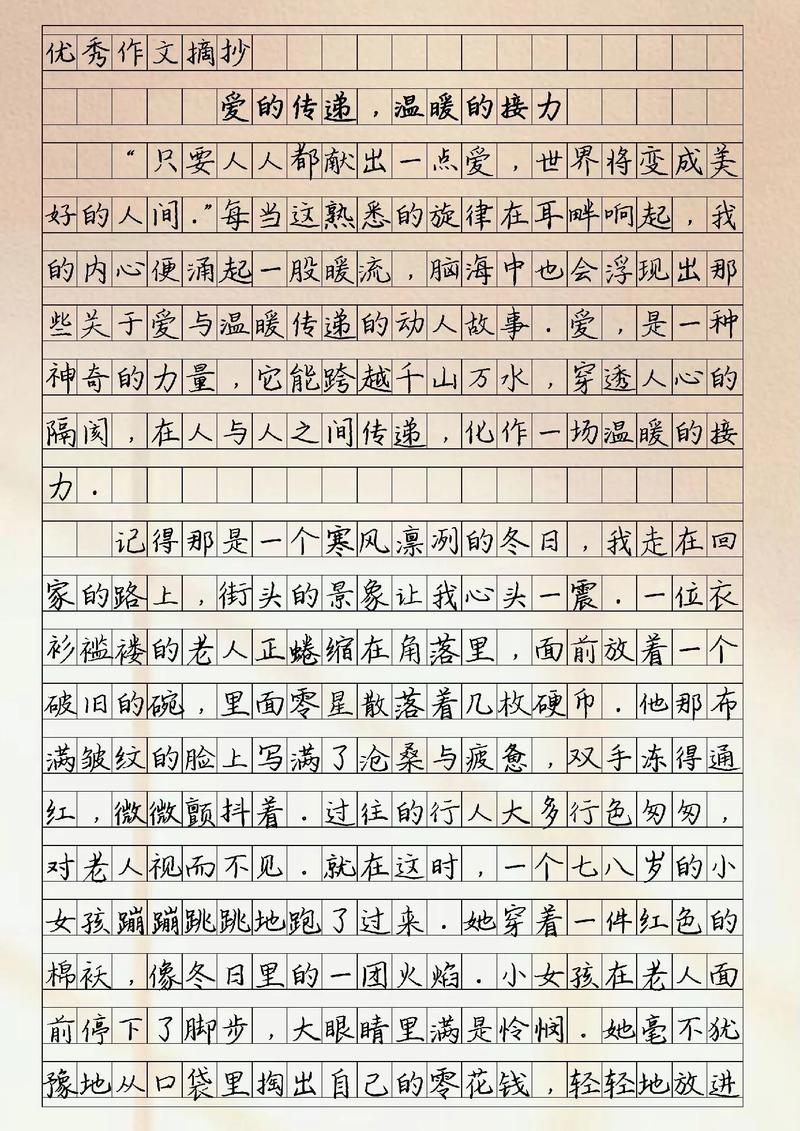 优秀作文摘抄
爱的传递，温暖的接力
“只要人人都献出一点爱，世界将变成美
好的人间．”每当这熟悉的旋律在耳畔响起，我
的内心便涌起一股暖流，脑海中也会浮现出那
些关于爱与温暖传递的动人故事．爱，是一种
神奇的力量，它能跨越千山万水，穿透人心的
隔阂，在人与人之间传递，化作一场温暖的接
力．
记得那是一个寒风凛冽的冬日，我走在回
家的路上，街头的景象让我心头一震．一位衣
衫褴褛的老人正蜷缩在角落里，面前放着一个
破旧的碗，里面零星散落着几枚硬币．他那布
满皱纹的脸上写满了沧桑与疲惫，双手冻得通
红，微微颤抖着．过往的行人大多行色匆匆，
对老人视而不见．就在这时，一个七八岁的小
女孩蹦蹦跳跳地跑了过来．她穿着一件红色的
棉袄，像冬日里的一团火焰．小女孩在老人面
前停下了脚步，大眼睛里满是怜悯．她毫不犹
豫地从口袋里掏出自己的零花钱，轻轻地放进